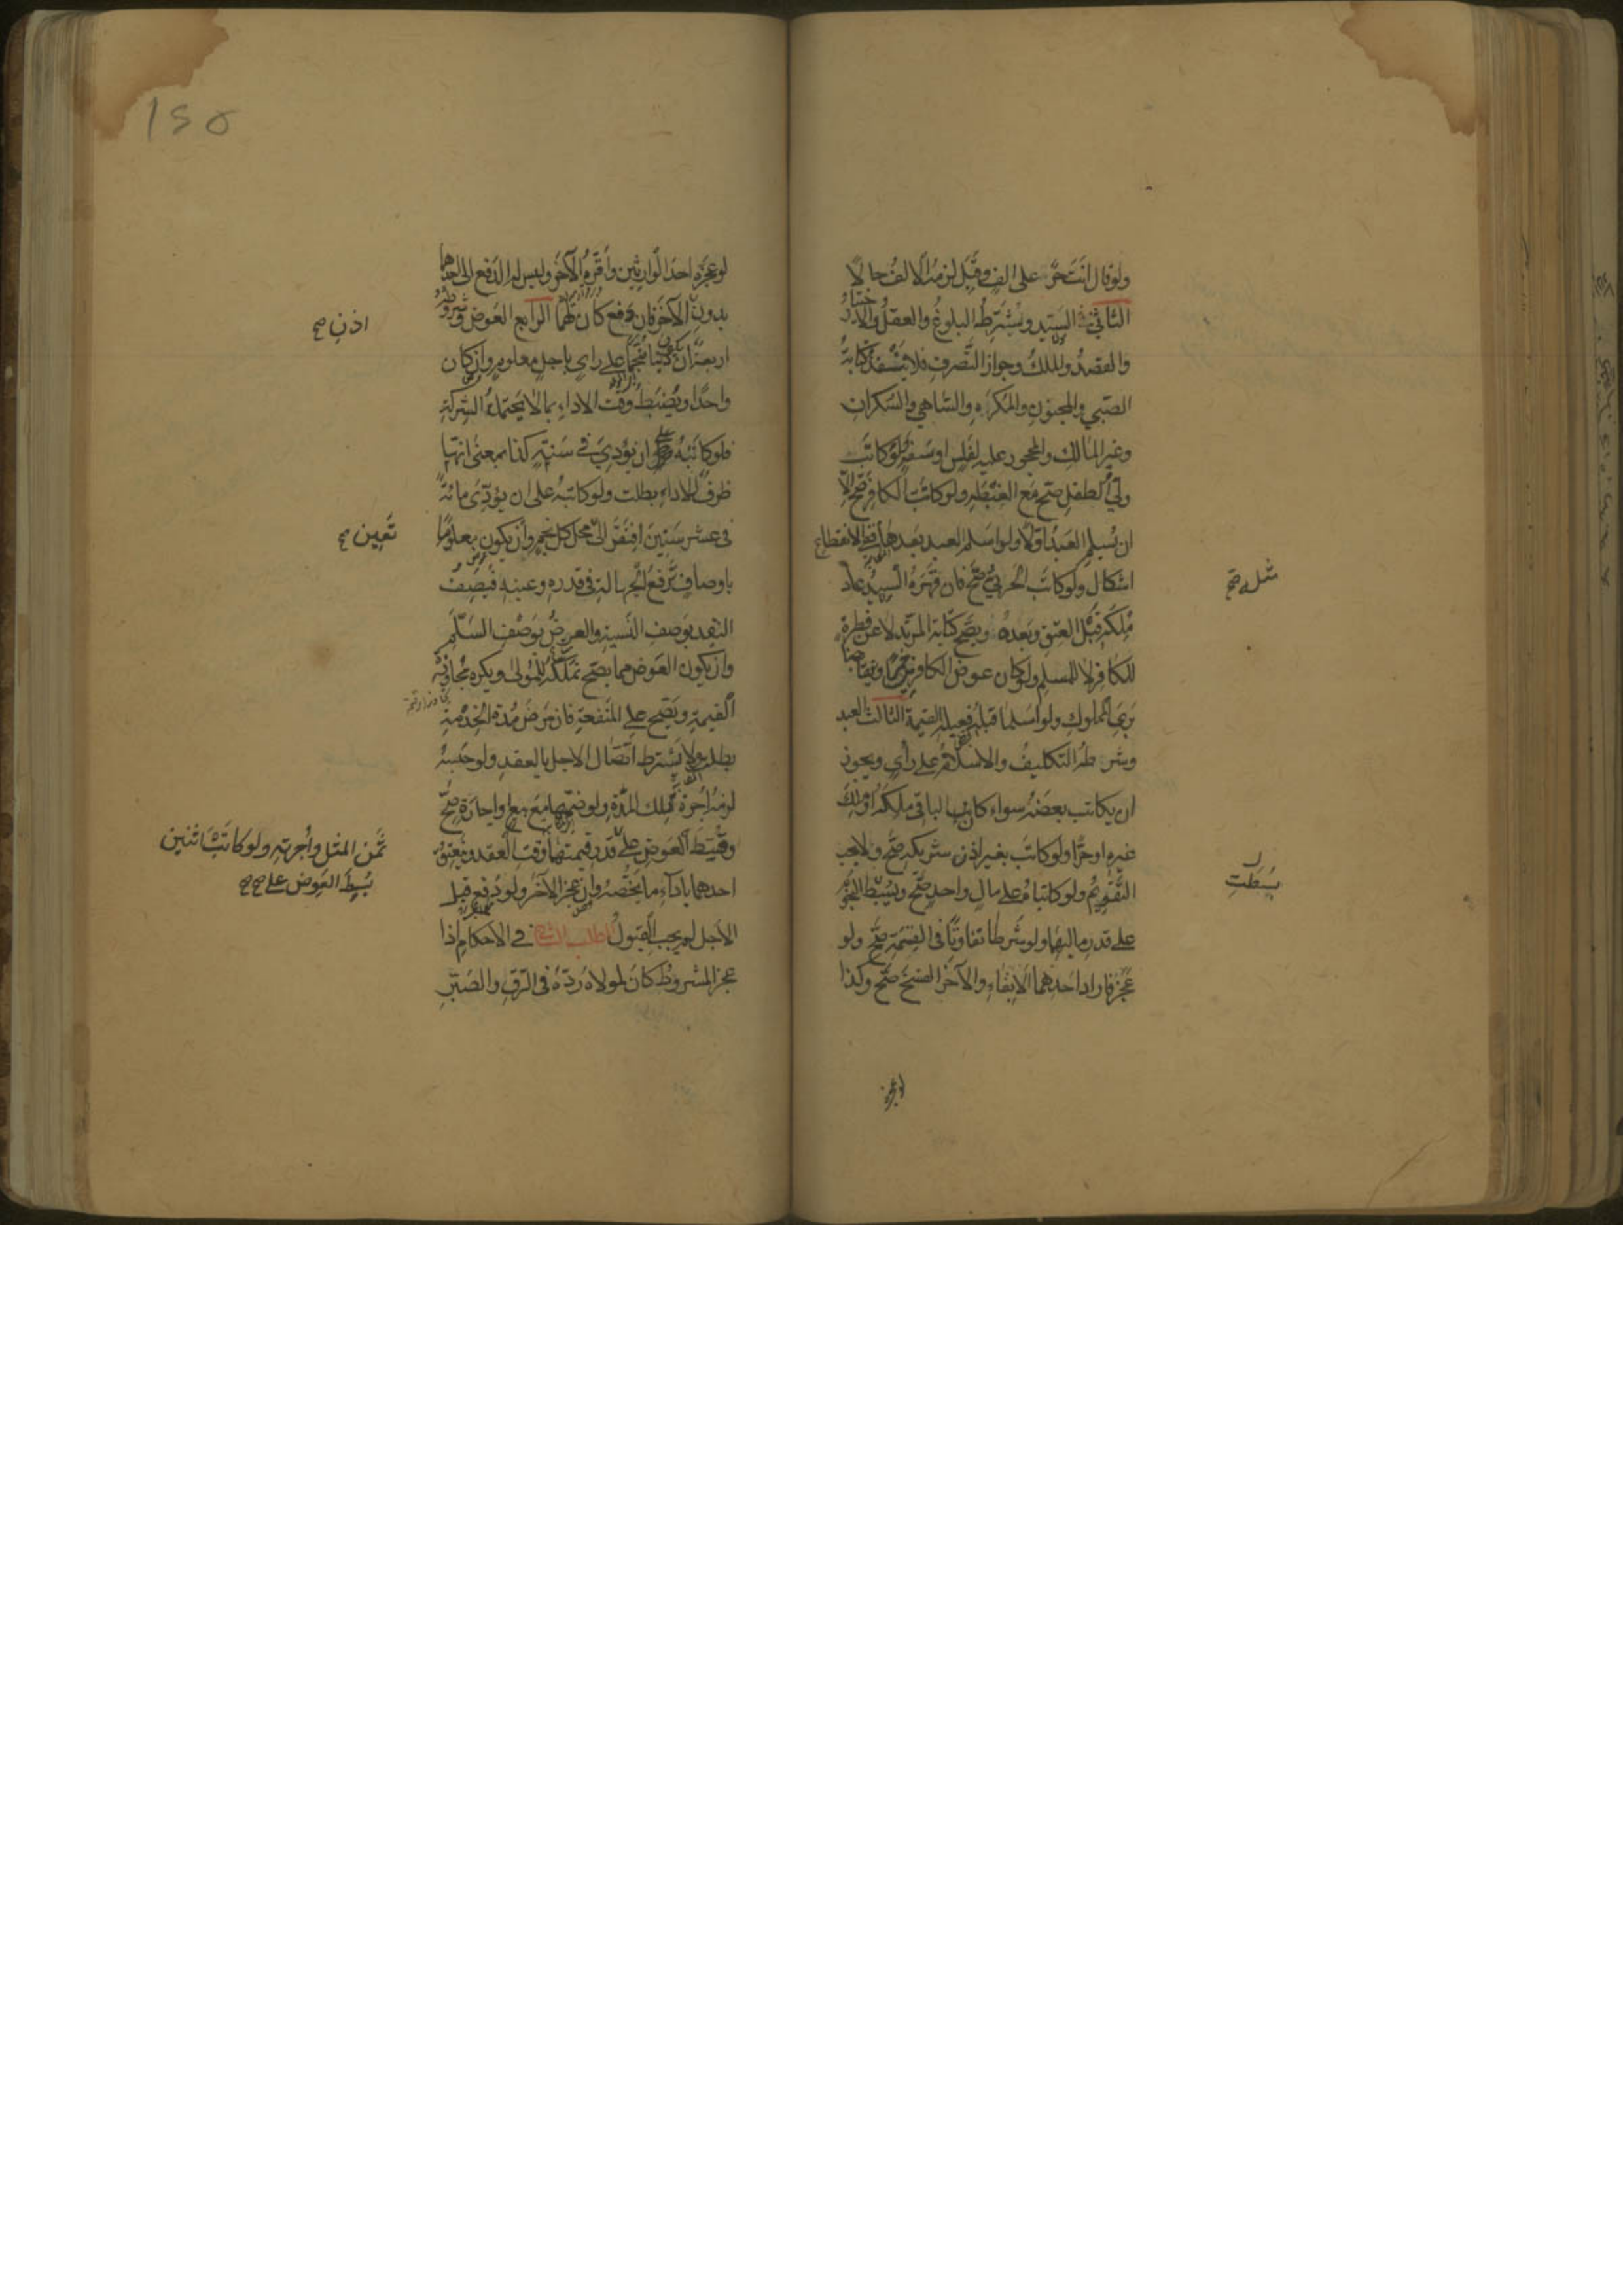 ولو قال انت حر على الف وقبل لزمه الالف حالا
الثاني السيد ويشترط البلوغ والعقل والاختيار
والقصد والملك وجواز التصرف فلا ينفذ كتابة
الصبي والمجنون والمكره والساهي والسكران
وغير المالك والمحجور عليه لفلس او سفه ولو كاتب
ولي الطفل صح مع الغبطة ولو كاتب الكافر صح الا
ان يسلم العبد اولا ولو اسلم العبد بعد هل الانقطاع
اشكال ولو كاتب الحربي صح فان قهره السيد عاد
مثله صح
ملكه قبل العتق وبعده ويصح كتابة المرتد لا عن فطرة
للكافر لا للمسلم ولو كان عوض الكافرين خمرا وتقابضا
برئ المملوك ولو اسلما قبله فعليه القيمة الثالث العبد
وشرطه التكليف والاسلام على رأي ويجوز
ان يكاتب بعضه سواء كان الباقي ملكه او ملك
غيره او حرا ولو كاتب بغير اذن شريكه صح ولا يجب
التقويم ولو كاتباه على مال واحد صح وبسط
بسطت
على قدر ماليهما ولو شرطا تفاوتا في القسمة صح ولو
عجز فاراد احدهما الابقاء والآخر الفسخ صح وكذا
لو عجزه
١٢٥
لو عجزه احد الوارثين واقره الآخر وليس له الدفع الى احدهما
بدون الآخر فان دفع كان لهما الرابع العوض وشروطه
اذن صح
اربعة ان يكون دينا منجما على رأي باجل معلوم وان كان
واحدا ويضبط وقت الاداء بما لا يحتمل الشركة
فلو كاتبه على ان يؤدي في سنة كذا بمعنى انها
ظرف للاداء بطلت ولو كاتبه على ان يؤدي مائة
في عشر سنين افتقر الى محل كل نجم وان يكون معلوما
تعيين صح
باوصاف ترفع الجهالة في قدره وعينه فيصف
النقد بوصف النسيئة والعرض بوصف السلم
وان يكون العوض مما يصح تملكه للمولى ويكره مجاوزة
القيمة ويصح على المنفعة فان مرض مدة الخدمة
بطلت ولا يشترط اتصال الاجل بالعقد ولو حبسه
لزمه اجرة تلك المدة ولو ضمها مع بيع او اجارة صح
وقسط العوض على قدر قيمتهما وقت العقد ويعتق
ثمن المثل واجرته ولو كاتب اثنين
بسط العوض على صح صح
احدهما باداء ما يخصه وان عجز الآخر ولو دفع قبل
الاجل لم يجب القبول المطلب الثاني في الاحكام اذا
عجز المشروط كان لمولاه رده في الرق والصبر